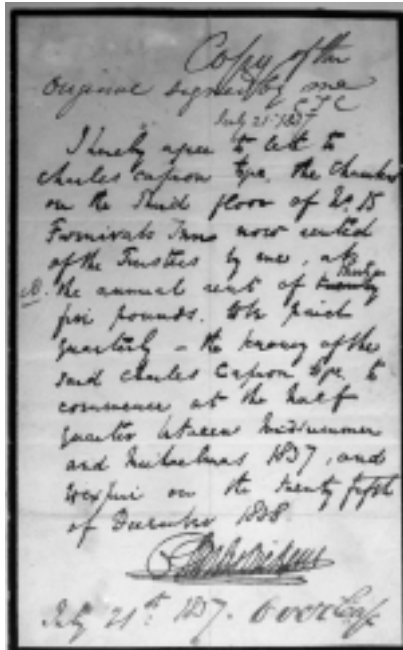 Copy of the
original signed by me
C J C
July 21st 1837
I hereby agree to let to
Charles Capron Esqe. the chambers
on the third floor of No. 15
Furnivals Inn now rented
of the Trustees by me, at
the annual rent of
five pounds. to be paid
quarterly – the tenancy of the
said Charles Capron Esqe. to
commence at the half
quarter between Midsummer
and Michaelmas 1837, and
to expire on the twenty fifth
of December 1838.
July 21st. 1837. Overleaf